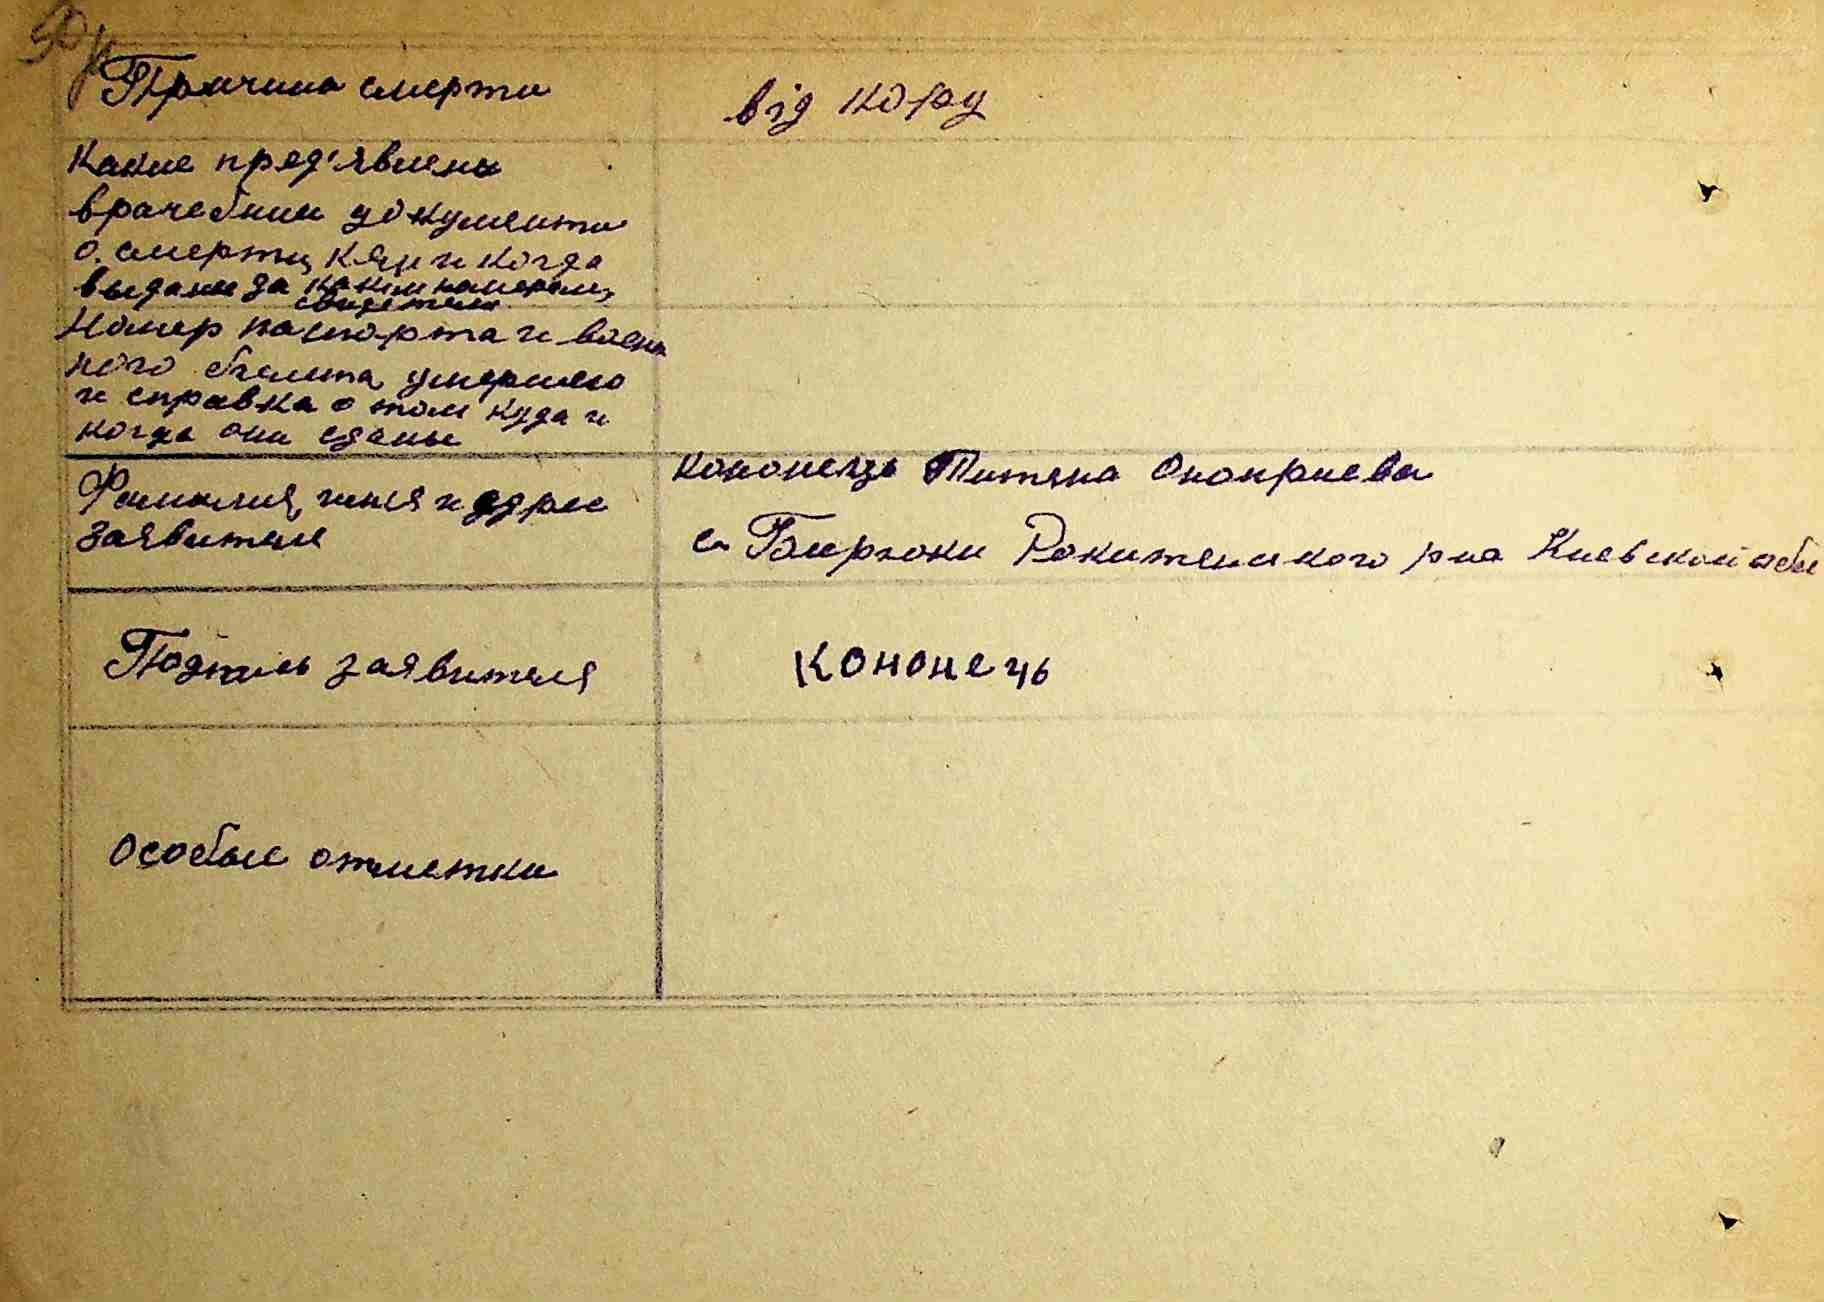 Причина смерти
від кору
Какие пред'явлены
врачебнии документи
о смерти, кем и когда
выдани за каким номером,
свидетели
Номер паспорта и воен
ного билета умершего
и справка о том куда и
когда они сданы
Фамилия, имя и адрес
заявителя
Кононець Титяна Оноприева
с. Бирюки Рокитенского рна Киевской обл
Подпись заявителя
Кононець
Особые отметки